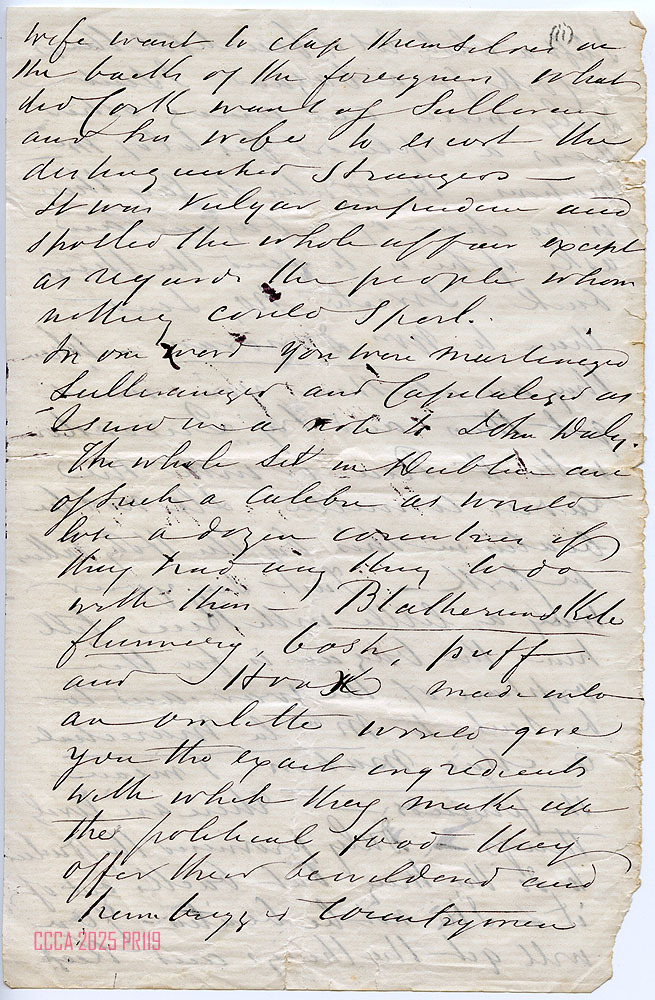 (ii)
wife want to clap themselves on
the backs of the foreigners what
did Cork want of Sullivan
and his wife to escort the
distinguished strangers —
It was vulgar impudence and
spoiled the whole affair except
as regards the people whom
nothing could spoil.
In one word you were martineged
Sullivanized and Capitaleged as
I saw in a note to John Daly.
The whole set in Dublin are
of such a calibre as would
lose a dozen countries if
they had any thing to do
with them — Blatherumskite
flummery, bosh, puff
and Hoax made into
an omlette would give
you the exact ingredients
with which they make up
the political food they
offer their bewildered and
humbugged countrymen
CCCA 2025 PR119